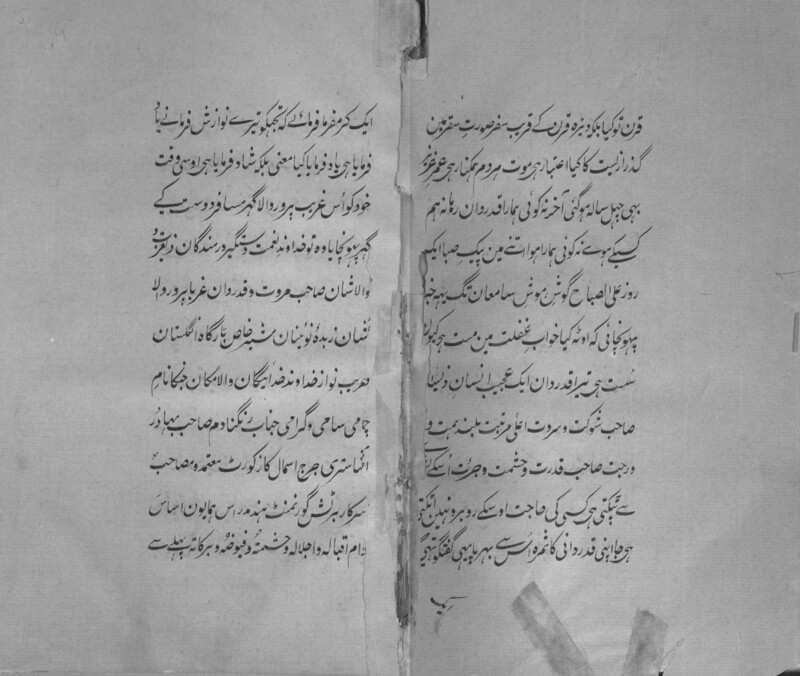 قرن تو کیا بلکہ دیڑہ قرن کے قریب سفر صورتِ سقر مین
گذر از یست کا کیا اعتبار ہی موت ہر دم ہمکنار ہی عمر عزیز
یہی چہل سالہ ہوگئی آخر نہ کوئی ہمارا قدردان رہا نہ ہم
کسیکے ہوے نہ کوئی ہمارا ہوا اتنے مین پیک صبا ایک
روز علی الصباح گوش ہوش سامعان تک یہہ خبر
پہونچائی کہ اوٹہ کیا خواب غفلت مین مست ہی کیون
سست ہی تیرا قدردان ایک عجیب انسان ذیشان
صاحب شوکت و سروت اعلی مرتبت بلند ہمت و
درجت صاحب قدرت و حشمت و جرءت اسکے
سے ٹپکتی ہی کسی کی حاجت اوسکے روبرو نہین اٹکتی
ہی جا اپنی قدردانی کا ثمرہ اُس سے بہر پا یہی گفتگو تہی
ایک کرمفرما فرمائے کہ تجہکو تیرے نوازش فرمانے یاد
فرمایا ہی یاد فرمایا کیا معنی بلکہ شاد فرمایا ہی اوسی وقت
خود کو اُس غریب پرور والا گہر مسافر دوست کے
گہر پہونچایا وہ تو خداوند نعمت دستگیر درمندگان ذیعزت و
والا شان صاحب مروت و قدردان غربا پرور والا
نشان زبدۂ نوئینان مشیر خاص بارگاہ انگلستان
غریب نواز خداوند خدایگان والا مکان جنکا نام
نامی سامی و گرامی جناب رنگنادم صاحب بہادر
انہاستری جرج اسمال کاز کورٹ معتمد و مصاحب
سرکار برٹش گورنمنٹ ہند مدراس ہمایون اساس
دام اقبالہ و اجلالہ و حشمتہ و فیوضہ و برکاتہ پہلے سے